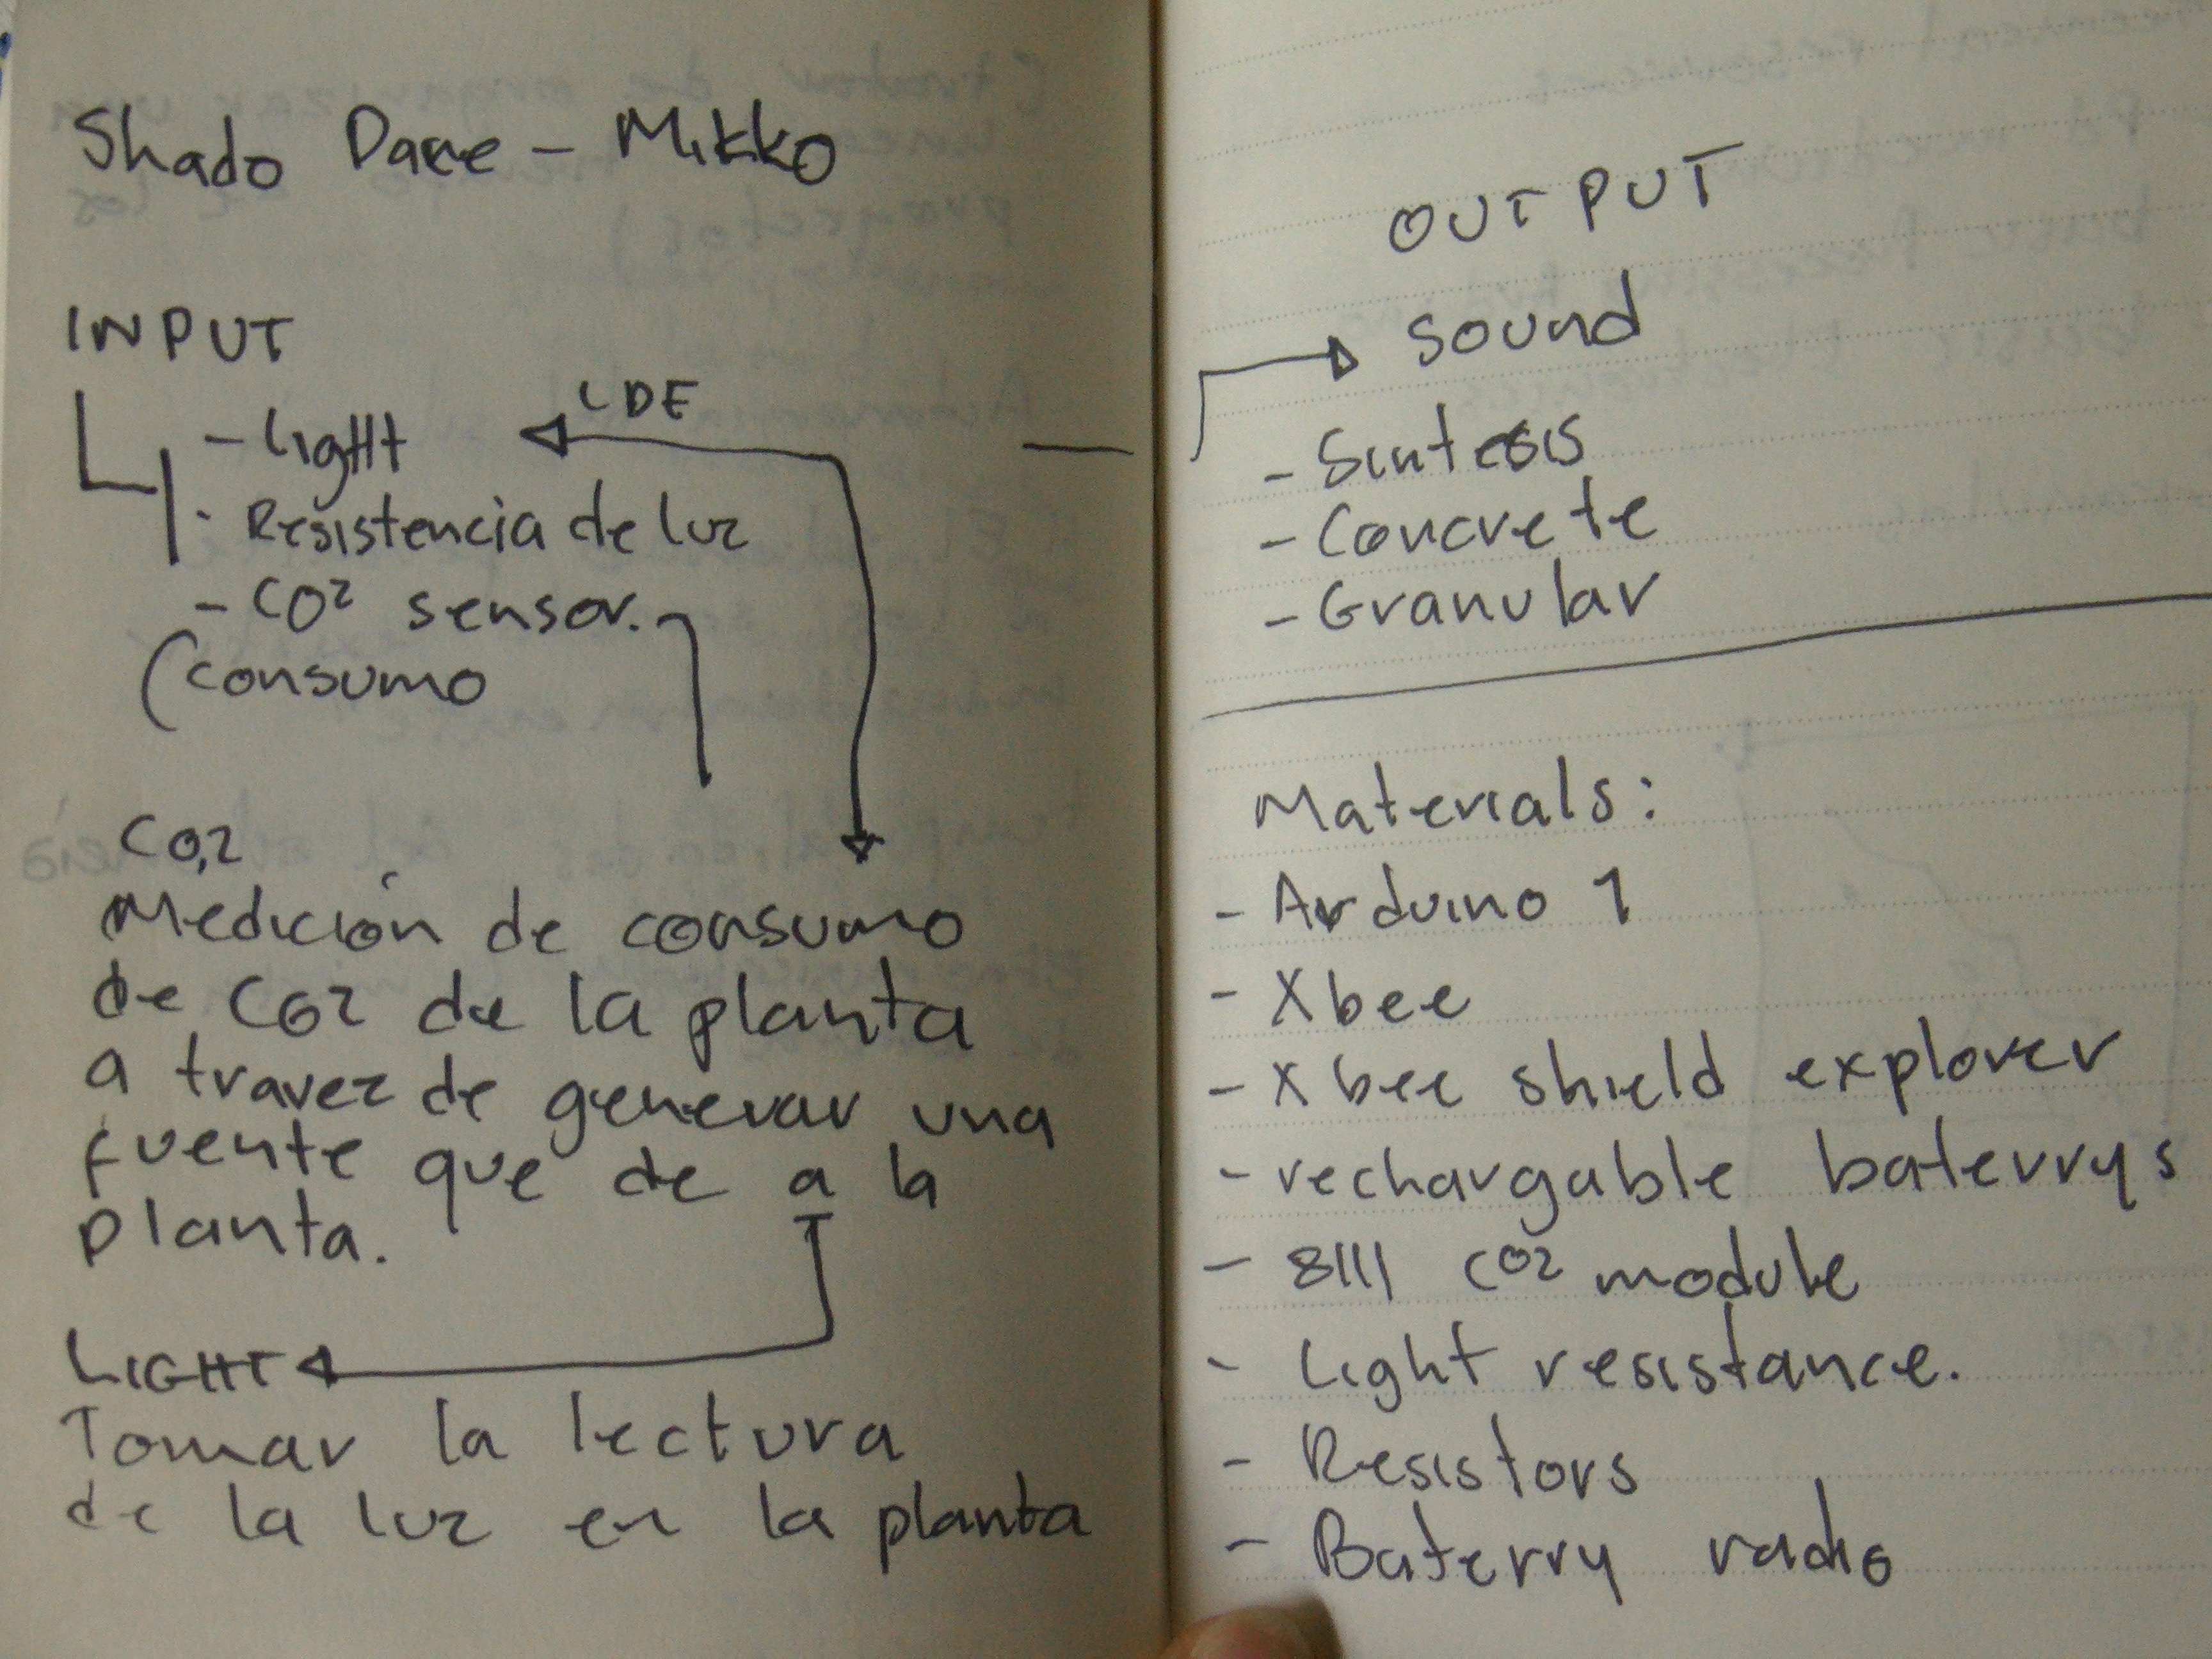 Shado Dare - Mikko
INPUT
- LigHt
LDE
- Resistencia de luz
- CO2 sensor.
(consumo
CO,2
Medición de consumo
de CO2 de la planta
a travez de generar una
fuente que de a la
planta.
LIGHT
Tomar la lectura
de la luz en la planta
OUTPUT
Sound
- Sintesis
- Concrete
- Granular
Materials:
- Arduino 1
- Xbee
- Xbee shield explorer
- rechargable baterrys
- 8111 CO2 module
- Light resistance.
- Resistors
- Baterry radio